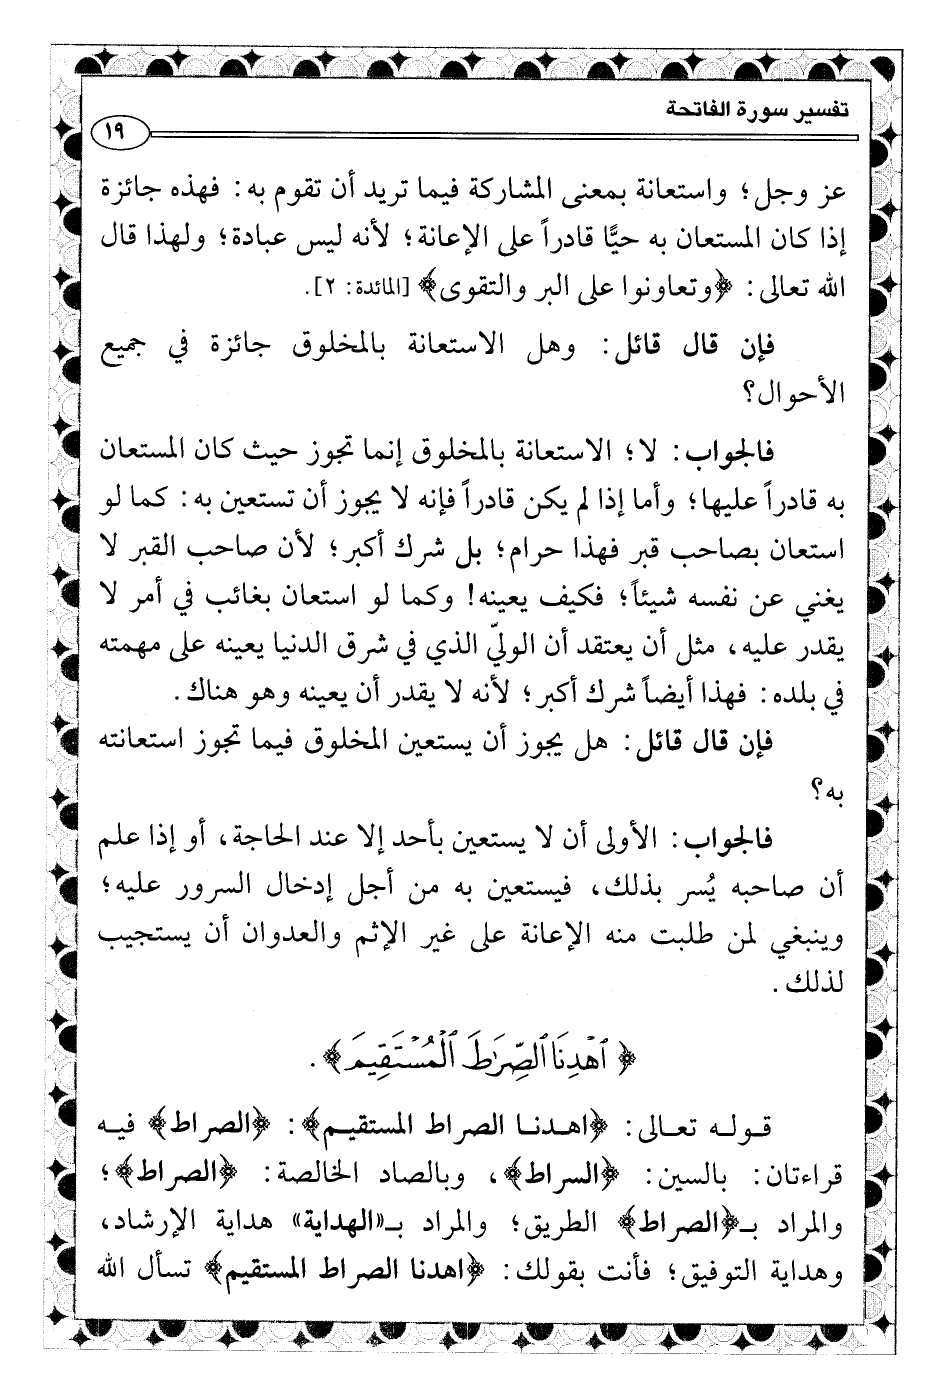 تفسير سورة الفاتحة
١٩
عز وجل؛ واستعانة بمعنى المشاركة فيما تريد أن تقوم به: فهذه جائزة
إذا كان المستعان به حيًّا قادراً على الإعانة؛ لأنه ليس عبادة؛ ولهذا قال
الله تعالى: ﴿وتعاونوا على البر والتقوى﴾ [المائدة: ٢].
فإن قال قائل: وهل الاستعانة بالمخلوق جائزة في جميع
الأحوال؟
فالجواب: لا؛ الاستعانة بالمخلوق إنما تجوز حيث كان المستعان
به قادراً عليها؛ وأما إذا لم يكن قادراً فإنه لا يجوز أن تستعين به: كما لو
استعان بصاحب قبر فهذا حرام؛ بل شرك أكبر؛ لأن صاحب القبر لا
يغني عن نفسه شيئاً؛ فكيف يعينه! وكما لو استعان بغائب في أمر لا
يقدر عليه، مثل أن يعتقد أن الوليّ الذي في شرق الدنيا يعينه على مهمته
في بلده: فهذا أيضاً شرك أكبر؛ لأنه لا يقدر أن يعينه وهو هناك.
فإن قال قائل: هل يجوز أن يستعين المخلوق فيما تجوز استعانته
به؟
فالجواب: الأولى أن لا يستعين بأحد إلا عند الحاجة، أو إذا علم
أن صاحبه يُسر بذلك، فيستعين به من أجل إدخال السرور عليه؛
وينبغي لمن طلبت منه الإعانة على غير الإثم والعدوان أن يستجيب
لذلك.
﴿ ٱهْدِنَا ٱلصِّرَٰطَ ٱلْمُسْتَقِيمَ ﴾.
قوله تعالى: ﴿اهدنا الصراط المستقيم﴾: ﴿الصراط﴾ فيه
قراءتان: بالسين: ﴿السراط﴾، وبالصاد الخالصة: ﴿الصراط﴾؛
والمراد بـ﴿الصراط﴾ الطريق؛ والمراد بـ«الهداية» هداية الإرشاد،
وهداية التوفيق؛ فأنت بقولك: ﴿اهدنا الصراط المستقيم﴾ تسأل الله